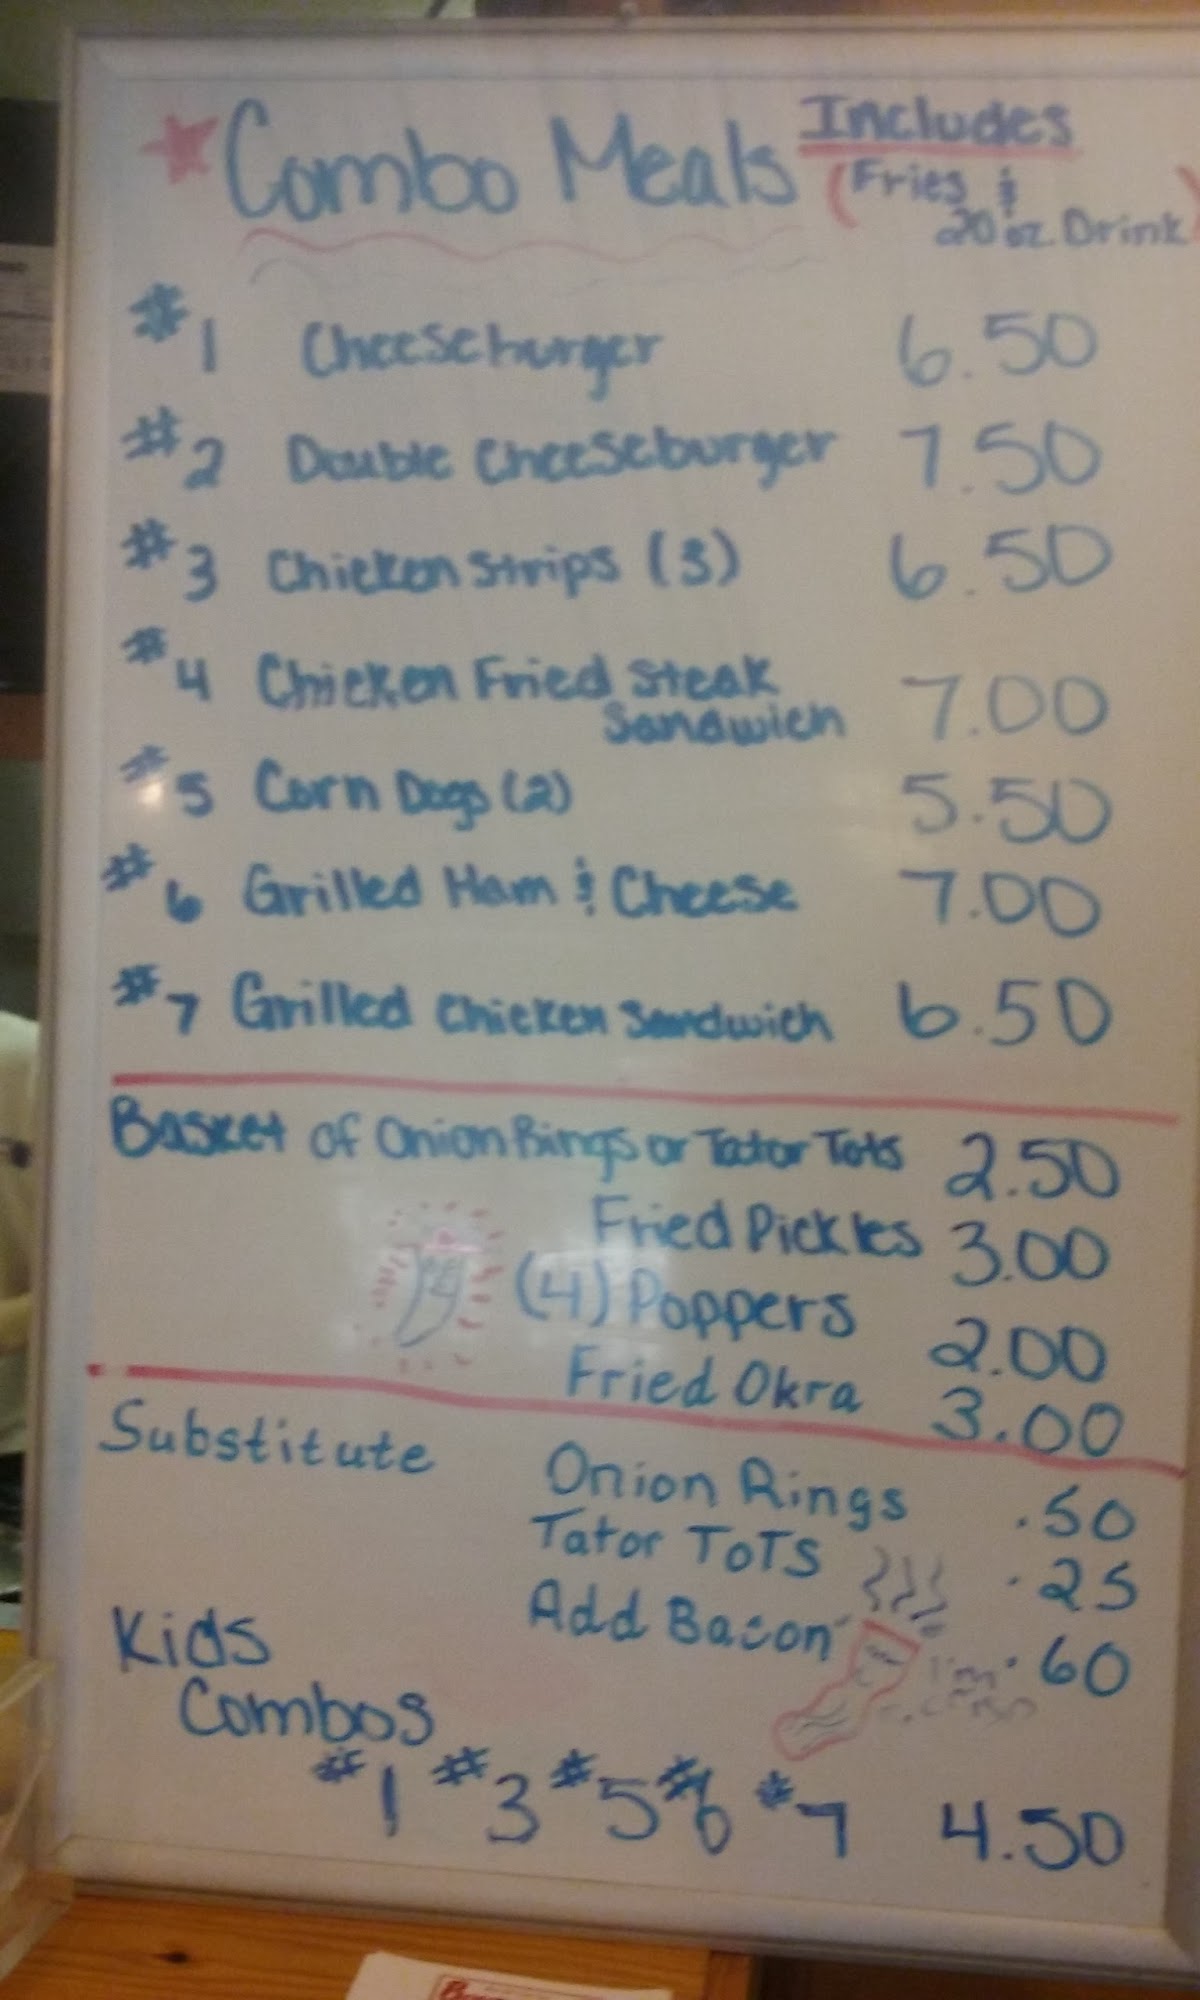 Combo Meals Includes
(Fries &
20 oz. Drink)
#1 Cheeseburger 6.50
#2 Double Cheeseburger 7.50
#3 Chicken Strips (3) 6.50
#4 Chicken Fried Steak
Sandwich 7.00
#5 Corn Dogs (2) 5.50
#6 Grilled Ham & Cheese 7.00
#7 Grilled Chicken Sandwich 6.50
Basket of Onion Rings or Tator Tots 2.50
Fried Pickles 3.00
(4) Poppers 2.00
Fried Okra 3.00
Substitute
Onion Rings .50
Tator ToTS .25
Add Bacon .60
I'm
Kids
Combos
#1 #3 #5 #6 #7 4.50